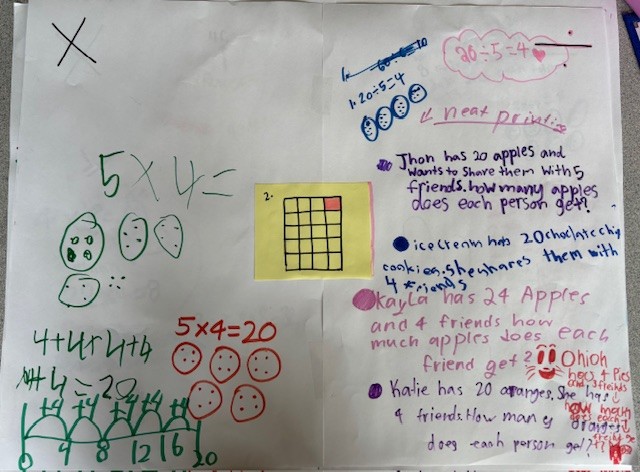 X
5 x 4 =
4+4+4+4
+4=20
+4 +4 +4 +4 +4
0 4 8 12 16 20
5x4=20
2.
1. 20÷5=4
20÷5=4
neat printing
Jhon has 20 apples and
wants to share them with 5
friends. how many apples
does each person get?
icecream has 20 choclate chip
cookies. she shares them with
4 friends
Kayla has 24 Apples
and 4 friends how
much apples does each
friend get?
Ohioh
has 4 Pies
and 5 freinds
how much
does each
Katie has 20 oranges. She has
4 friends. How many oranges
does each person get??